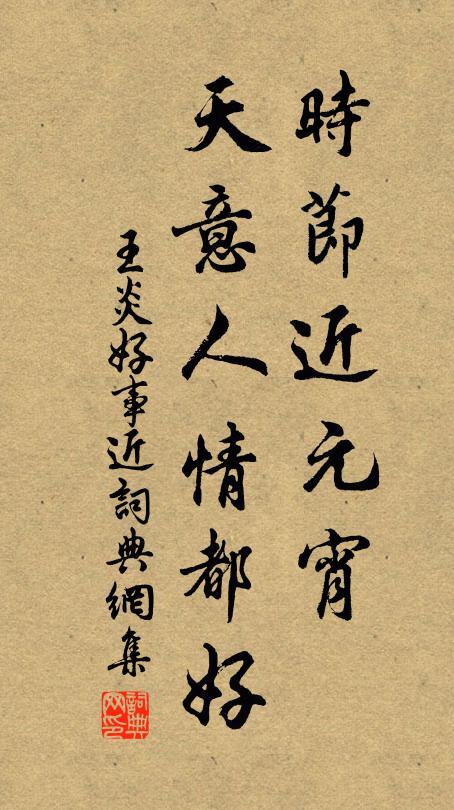 時節近元宵
天意人情都好
王炎好事近詞典網集
詞典网印